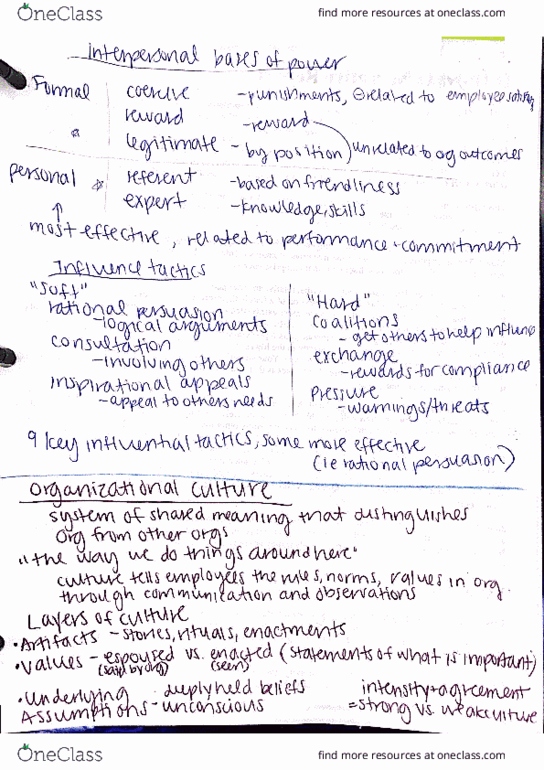 OneClass
find more resources at oneclass.com
interpersonal bases of power
Formal coercive - punishments, ⊖related to employee satisfaction
reward - reward
legitimate - by position) unrelated to og outcomes
personal referent - based on friendliness
expert - knowledge, skills
most effective, related to performance + commitment
Influence tactics
"Soft"
rational persuasion
- logical arguments
consultation
- involving others
inspirational appeals
- appeal to others needs
"Hard"
coalitions
- get others to help influence
exchange
- rewards for compliance
pressure
- warnings/threats
9 key influential tactics, some more effective
(ie rational persuasion)
organizational culture
system of shared meaning that distinguishes
org from other orgs
"the way we do things around here"
culture tells employees the rules, norms, values in org.
through communication and observations
Layers of culture
• Artifacts - stories, rituals, enactments
• values - espoused vs. enacted (statements of what is important)
(said by org) (seen)
• underlying deeply held beliefs
Assumptions - unconscious
intensity + agreement
= strong vs. weak culture
OneClass
find more resources at oneclass.com